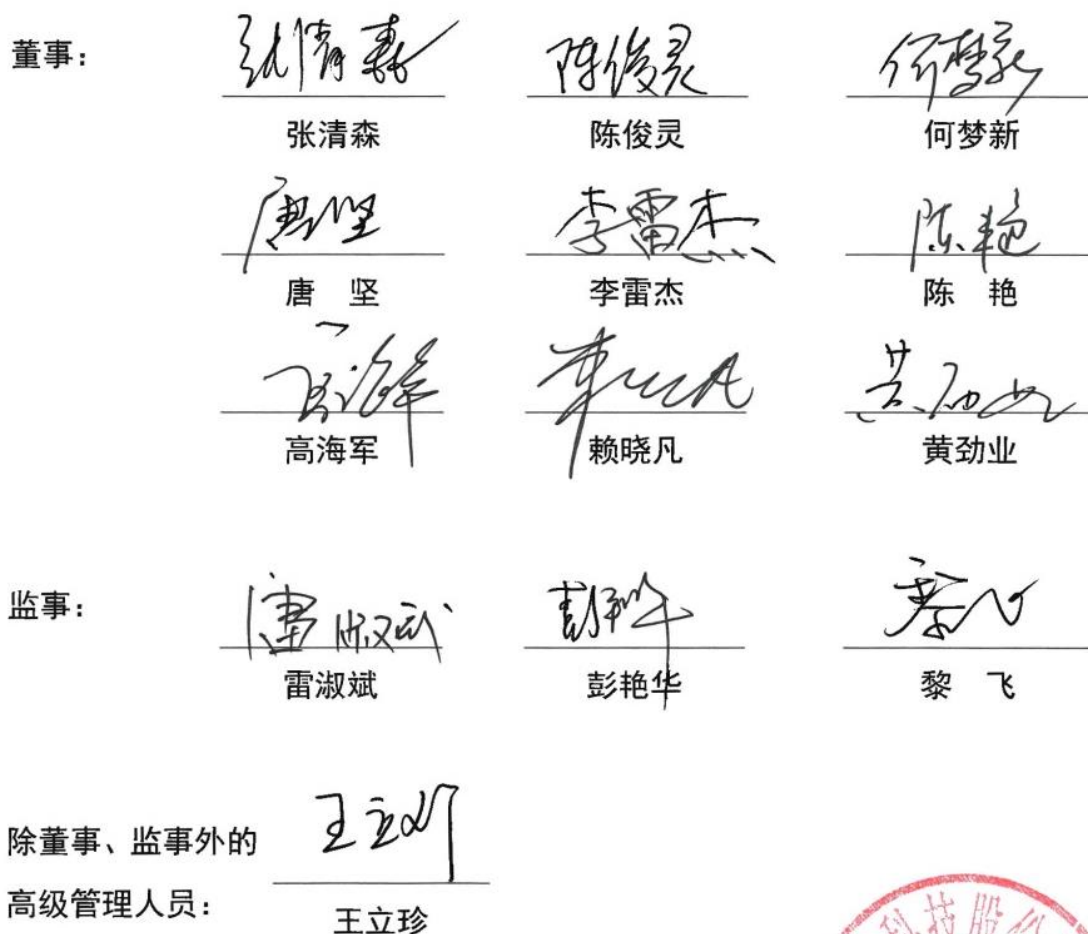 董事：
张清森 陈俊灵 何梦新
张清森 陈俊灵 何梦新
唐坚 李雷杰 陈艳
唐 坚 李雷杰 陈 艳
高海军 赖晓凡 黄劲业
监事：
雷淑斌 彭艳华 黎飞
雷淑斌 彭艳华 黎 飞
除董事、监事外的
高级管理人员：
王立珍
科技股份